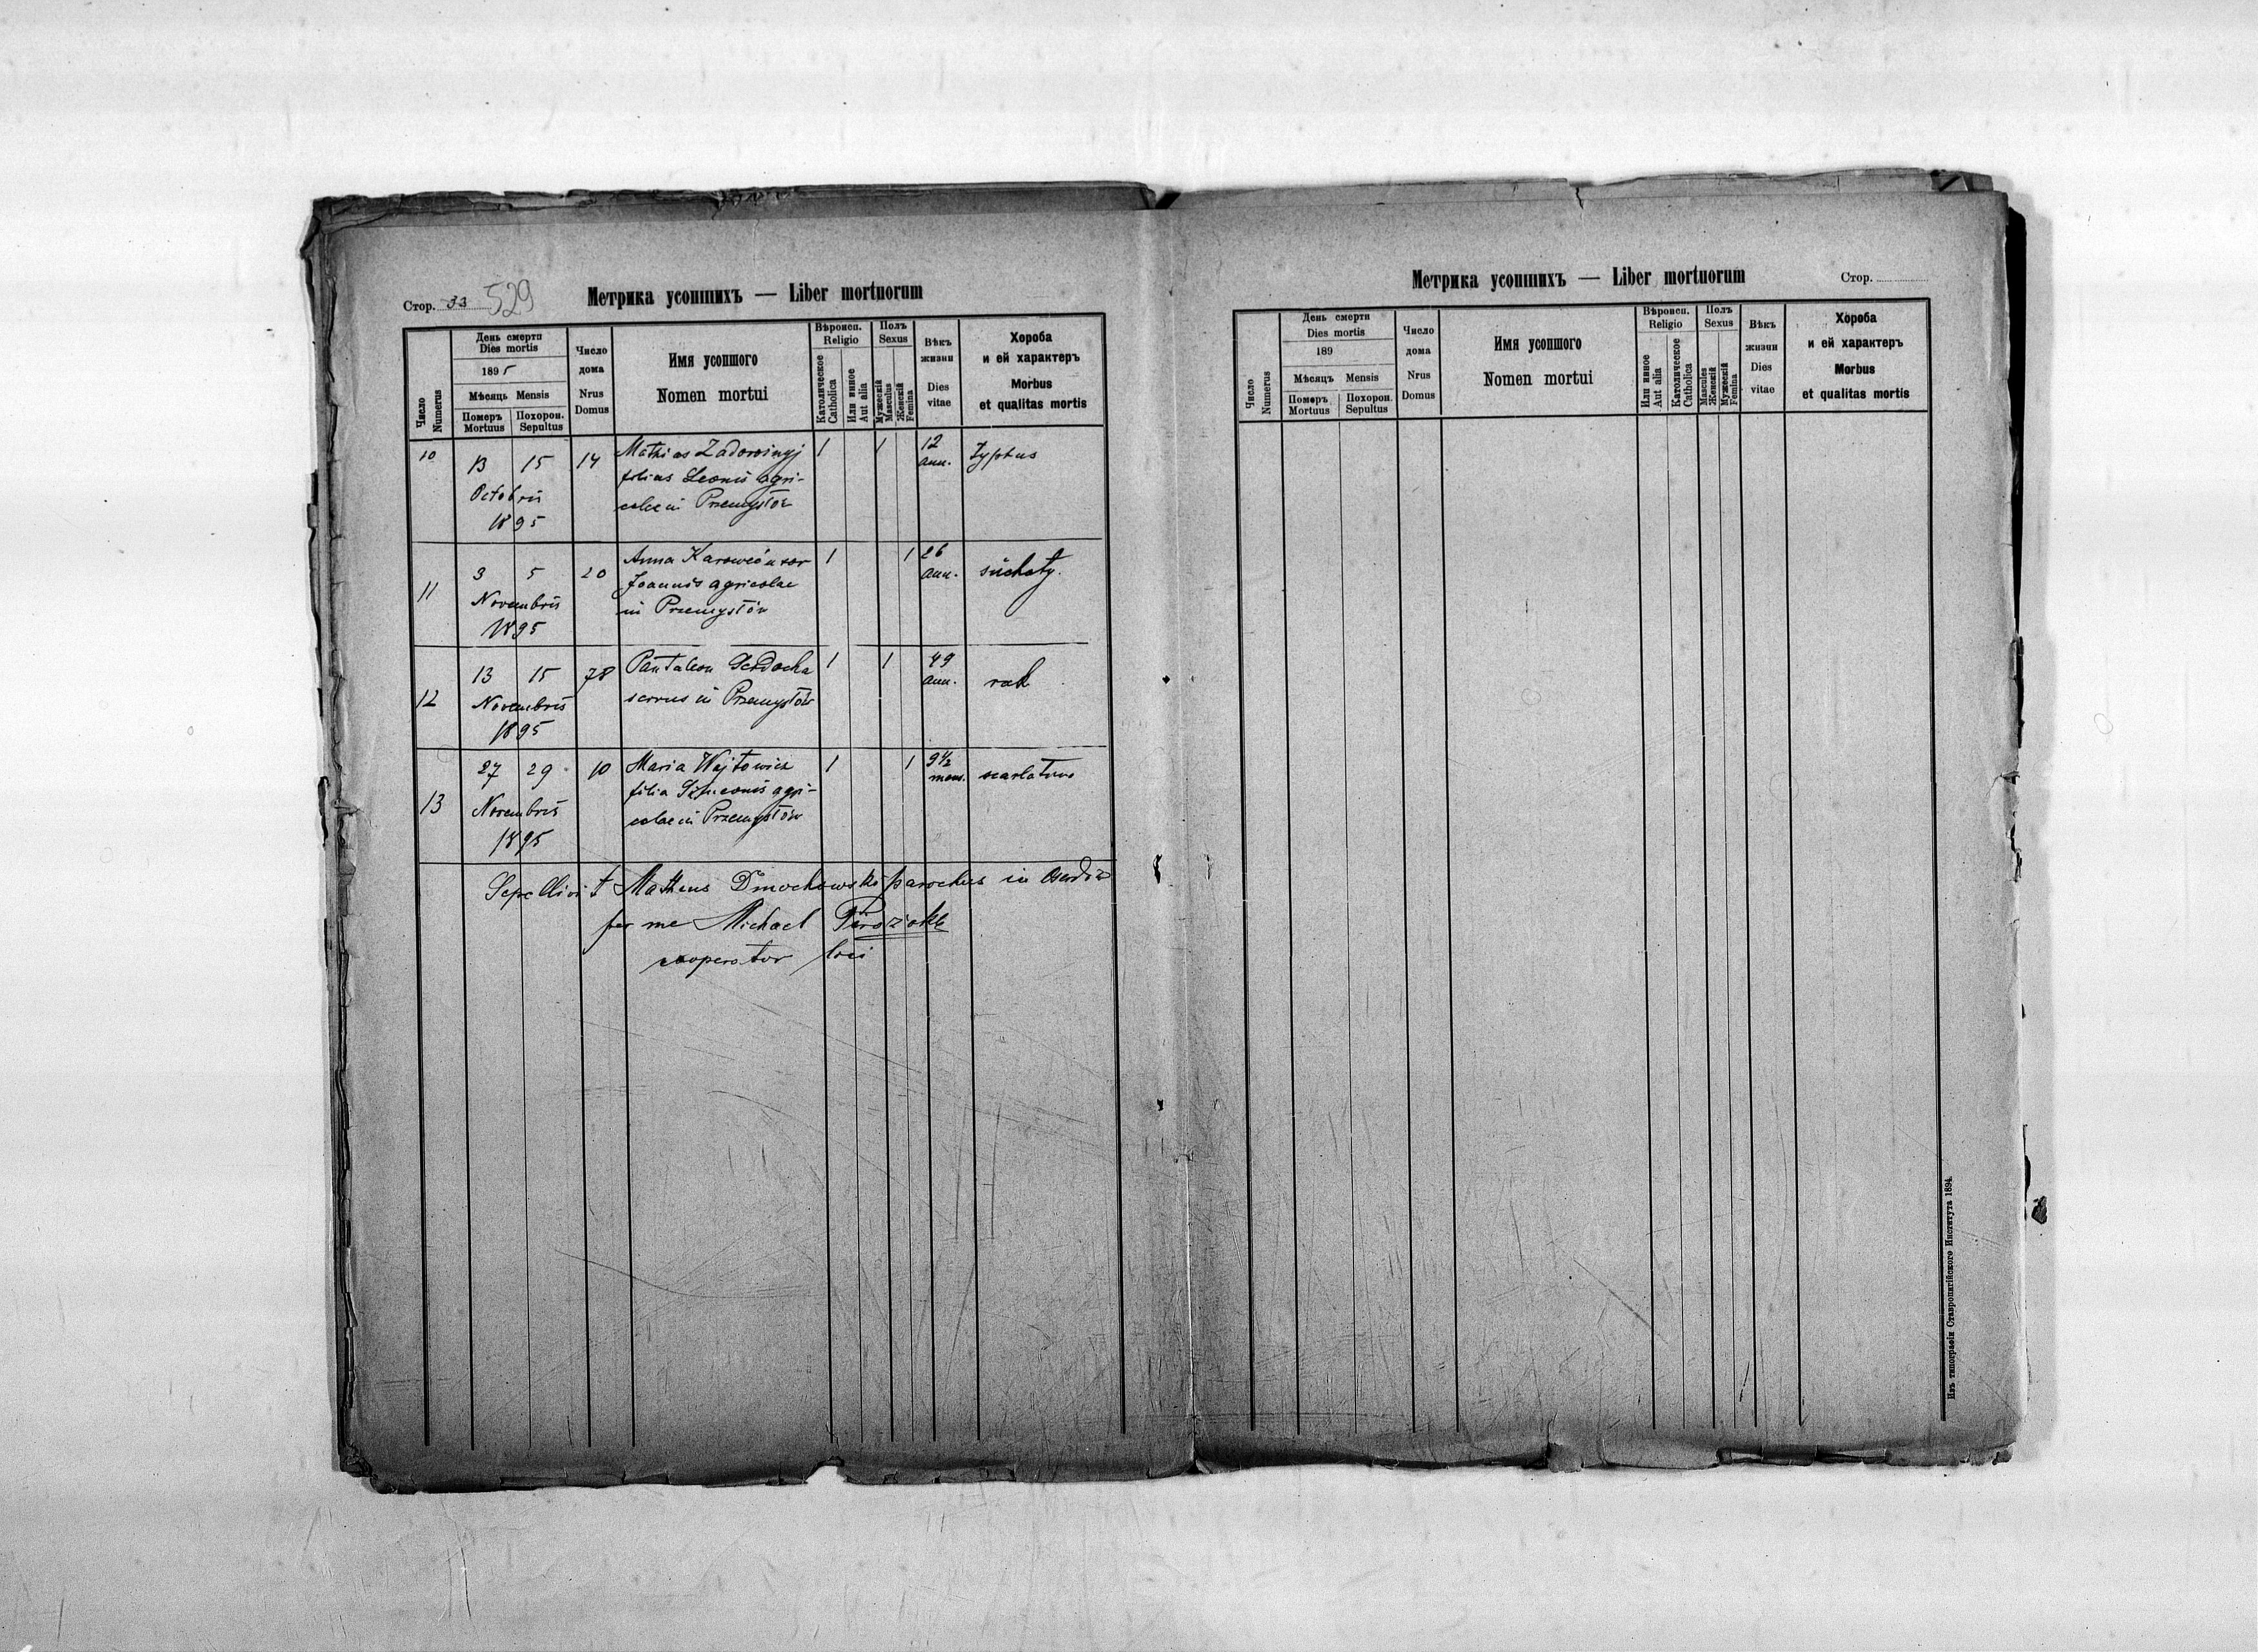 Стор. 33 529
Метрика усопшихъ — Liber mortuorum
Число
Numerus
День смерти
Dies mortis
1895
Мѣсяць Mensis
Померъ
Mortuus
Похорон.
Sepultus
Число
дома
Nrus
Domus
Имя усопшого
Nomen mortui
Вѣроисп.
Religio
Католическое
Catholica
Или инное
Aut alia
Полъ
Sexus
Мужескій
Masculus
Женскій
Femina
Вѣкъ
жизни
Dies
vitae
Хороба
и ей характеръ
Morbus
et qualitas mortis
10 13 15 14 Mathias Zadoroznyj 1 1 12 Typhus
filius Leonis agri- ann.
Octobris
colae in Przemysłów
1895
11 3 5 20 Anna 1 1 26 suchoty.
Joannis agricolae ann.
Novembris in Przemysłów
1895
12 13 15 78 Pantaleon 1 1 49 rak
servus in Przemysłów ann.
Novembris
1895
13 27 29 10 Maria Wajtowicz 1 1 9 1/2 scarlatina
filia Simeonis agri- mens.
Novembris colae in Przemysłów
1895
Sepellivit Matheus Dmochowski parochus in
per me Michael
cooperator loci
Метрика усопшихъ — Liber mortuorum
Стор.
Число
Numerus
День смерти
Dies mortis
189
Мѣсяцъ Mensis
Померъ
Mortuus
Похорон.
Sepultus
Число
дома
Nrus
Domus
Имя усопшого
Nomen mortui
Вѣроисп.
Religio
Или инное
Aut alia
Католическое
Catholica
Полъ
Sexus
Mascules
Женскій
Мужескій
Femina
Вѣкъ
жизни
Dies
vitae
Хороба
и ей характеръ
Morbus
et qualitas mortis
Изъ типографіи Ставропигійского Института 1894.